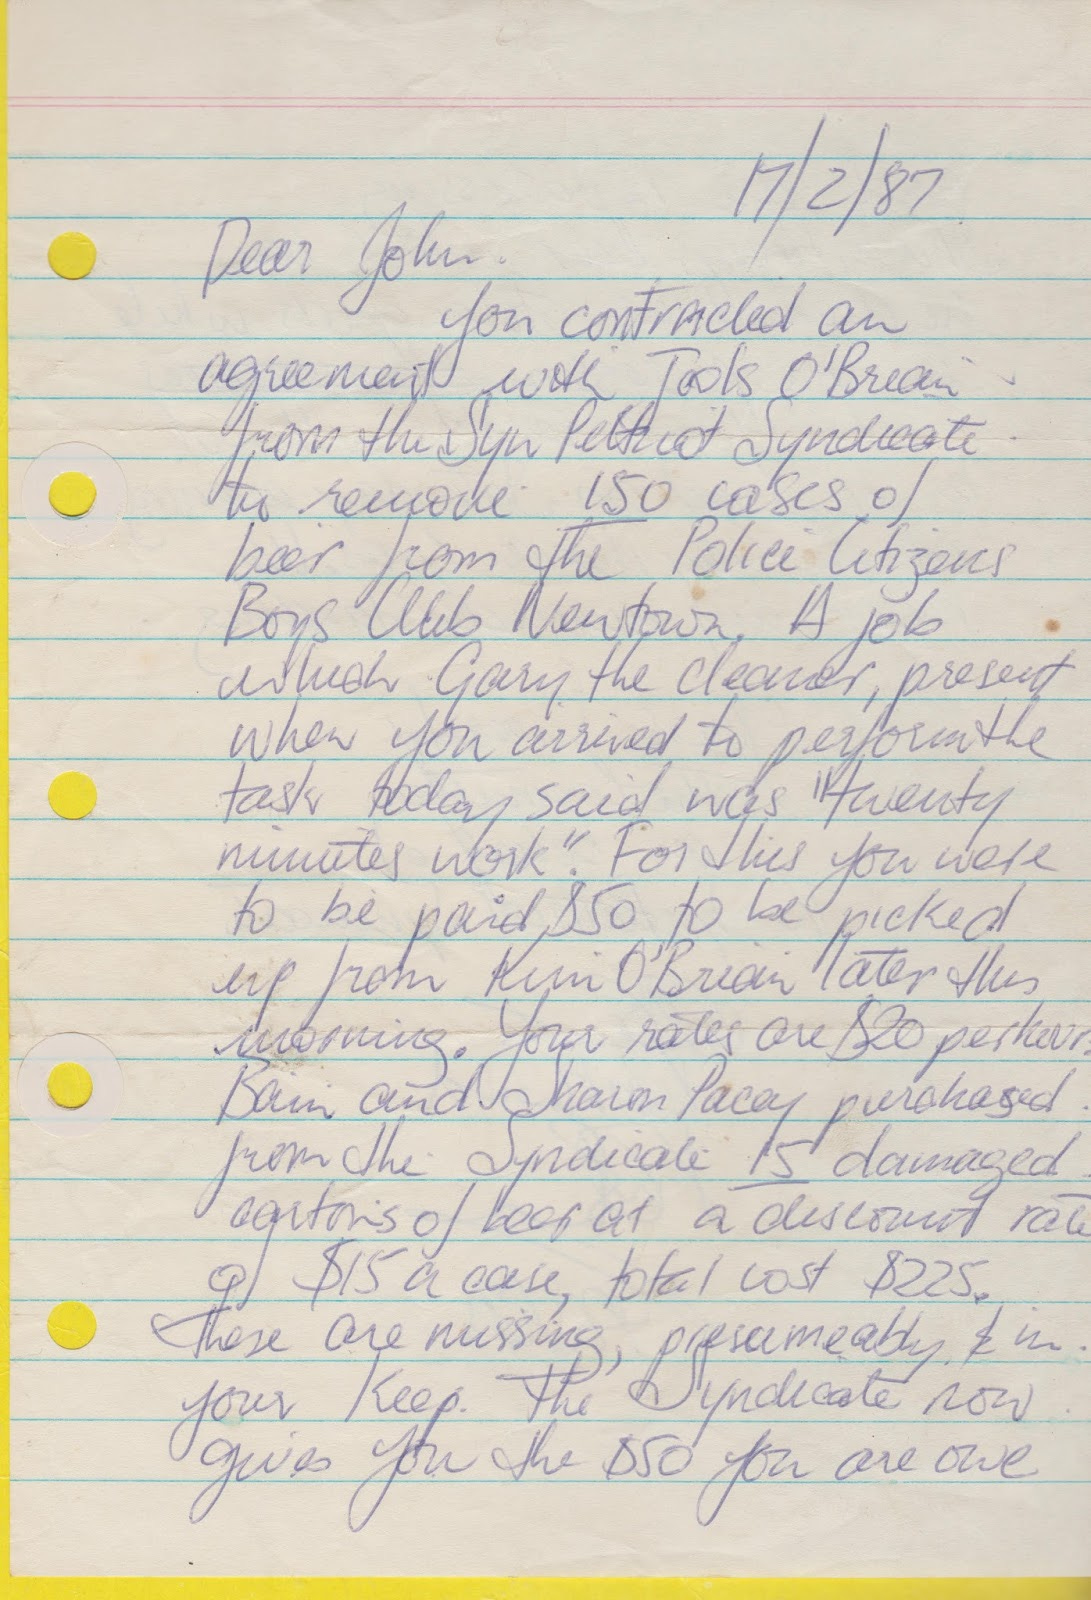 17/2/87
Dear John.
You contracted an
agreement with Tools O'Brian
from the Syn Syndicate
to remove 150 cases of
beer from the Police Citizens
Boys Club Newtown. A job
which Gary the cleaner, present
when you arrived to perform the
task today said was "twenty
minutes work". For this you were
to be paid $50 to be picked
up from Kim O'Brian later this
morning. Your rates are $20 per hour.
Bain and Sharon Pacey purchased
from the Syndicate 15 damaged
cartons of beer at a discount rate
of $15 a case, total cost $225.
These are missing, presumeably & in
your keep. The Syndicate now
gives you the $50 you are owe